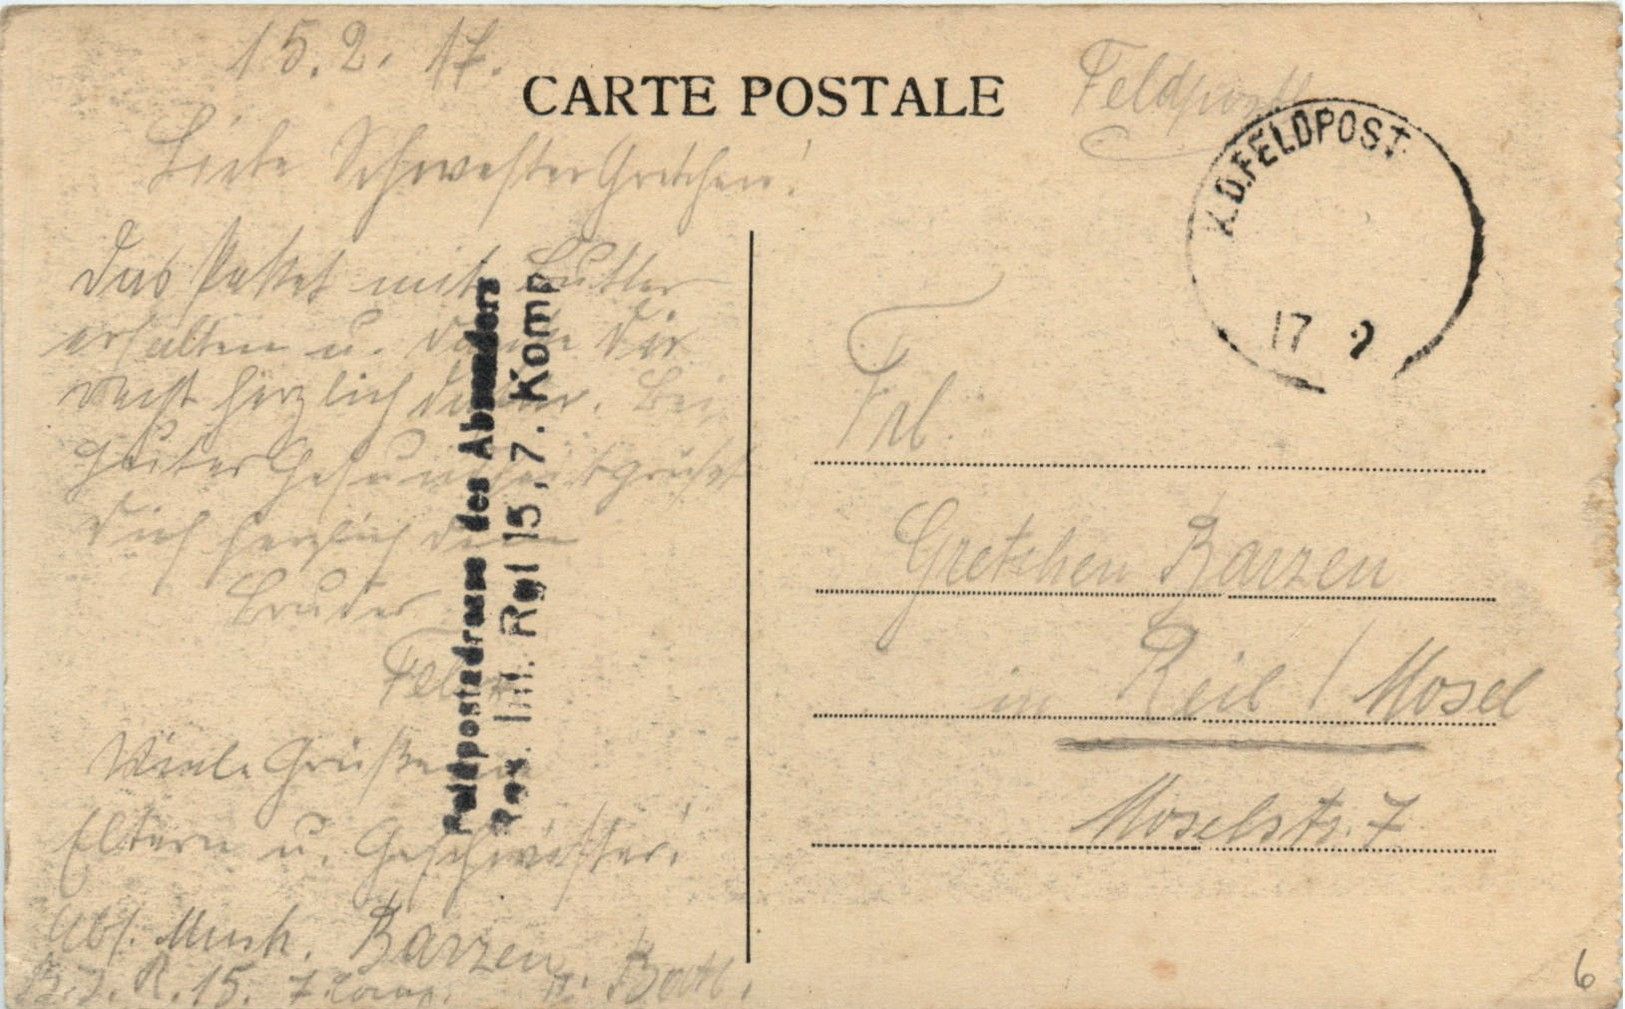 15. 2. 17.
CARTE POSTALE
Feldpost
K.D.FELDPOST
17 2
Liebe Schwester Gretchen!
Das Paket mit Butter
erhalten u. danke Dir
recht herzlich dafür. Bei
guter Gesundheit grüßt
Dich herzlich dein
Bruder
Felix
Viele Grüße an
Eltern u. Geschwister!
Abs. Musk. Barzen
R. I. R. 15. 7. Comp. II. Batl.
Feldpostadresse des Absenders
Res. Inf. Rgt 15, 7. Komp
Frl.
Gretchen Barzen
in Reil / Mosel
Moselstr. 7
6